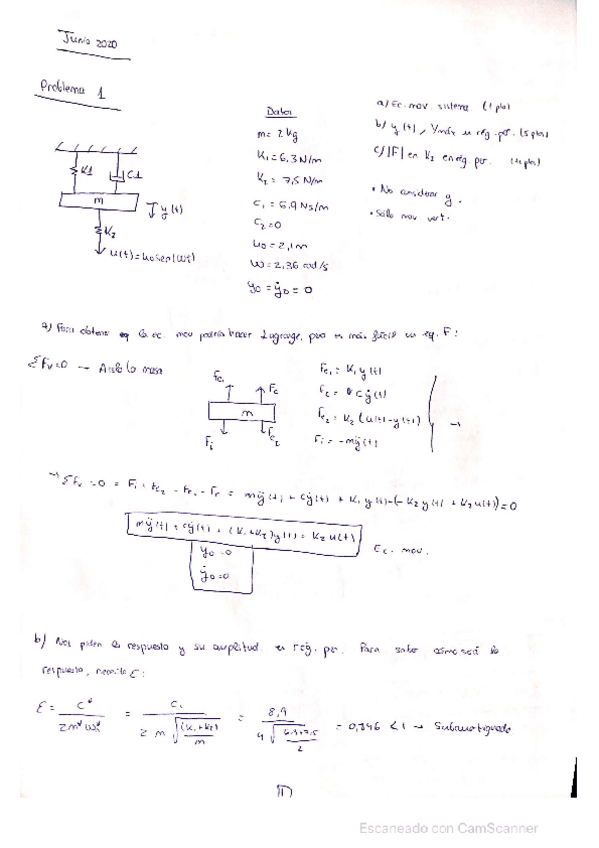 Junio 2020
Problema 1
Datos
m = 2 kg
K1 = 6,3 N/m
K2 = 7,5 N/m
C1 = 8,9 Ns/m
C2 = 0
u0 = 2,1 m
ω = 2,36 rad/s
y0 = ẏ0 = 0
a/ Ec. mov. sistema (1 pto)
b/ y(t), Ymáx en rég. per. (5 ptos)
c/ |F| en K2 en rég. per. (4 ptos)
• No considerar g.
• Sólo mov vert.
K1
C1
m
y(t)
K2
u(t)=u0 sen(ωt)
a) Para obtener la ec. mov podría hacer Lagrange, pero es más fácil un eq. F:
ΣFv=0 → Aíslo la masa
Fe1
Fc
m
Fi
Fe2
Fe1 = K1 y(t)
Fc = cẏ(t)
Fe2 = K2 (u(t)-y(t))
Fi = -mÿ(t)
→
→ ΣFv = 0 = Fi + Fe2 - Fe1 - Fc = mÿ(t) + cẏ(t) + K1 y(t) - (-K2 y(t) + K2 u(t)) = 0
mÿ(t) + cẏ(t) + (K1+K2)y(t) = K2 u(t)
y0 = 0
ẏ0 = 0
Ec. mov.
b) Nos piden la respuesta y su amplitud en rég. per. Para saber cómo será la
respuesta, necesito ξ:
ξ = C* / 2m*ω* = C1 / 2 m √((K1+K2)/m) = 8,9 / 4 √((6,3+7,5)/2) = 0,846 < 1 → Subamortiguado
1
Escaneado con CamScanner